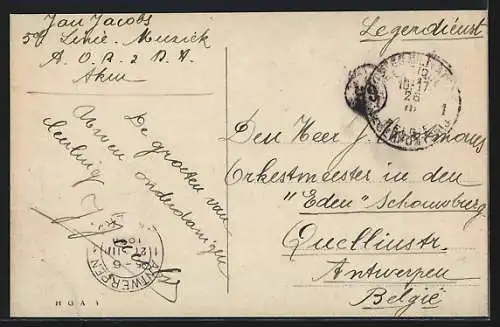 Jan Jacobs
5e Linie. Muziek
A. O. R. 2 D. A.
Aken
Legerdienst
De groeten van
Uwen onderdanigen
leerling
Den Heer J.
Orkestmeester in den
"Eden" Schouwburg
Quellinstr.
Antwerpen
België
ANTWERPEN
H G A 1